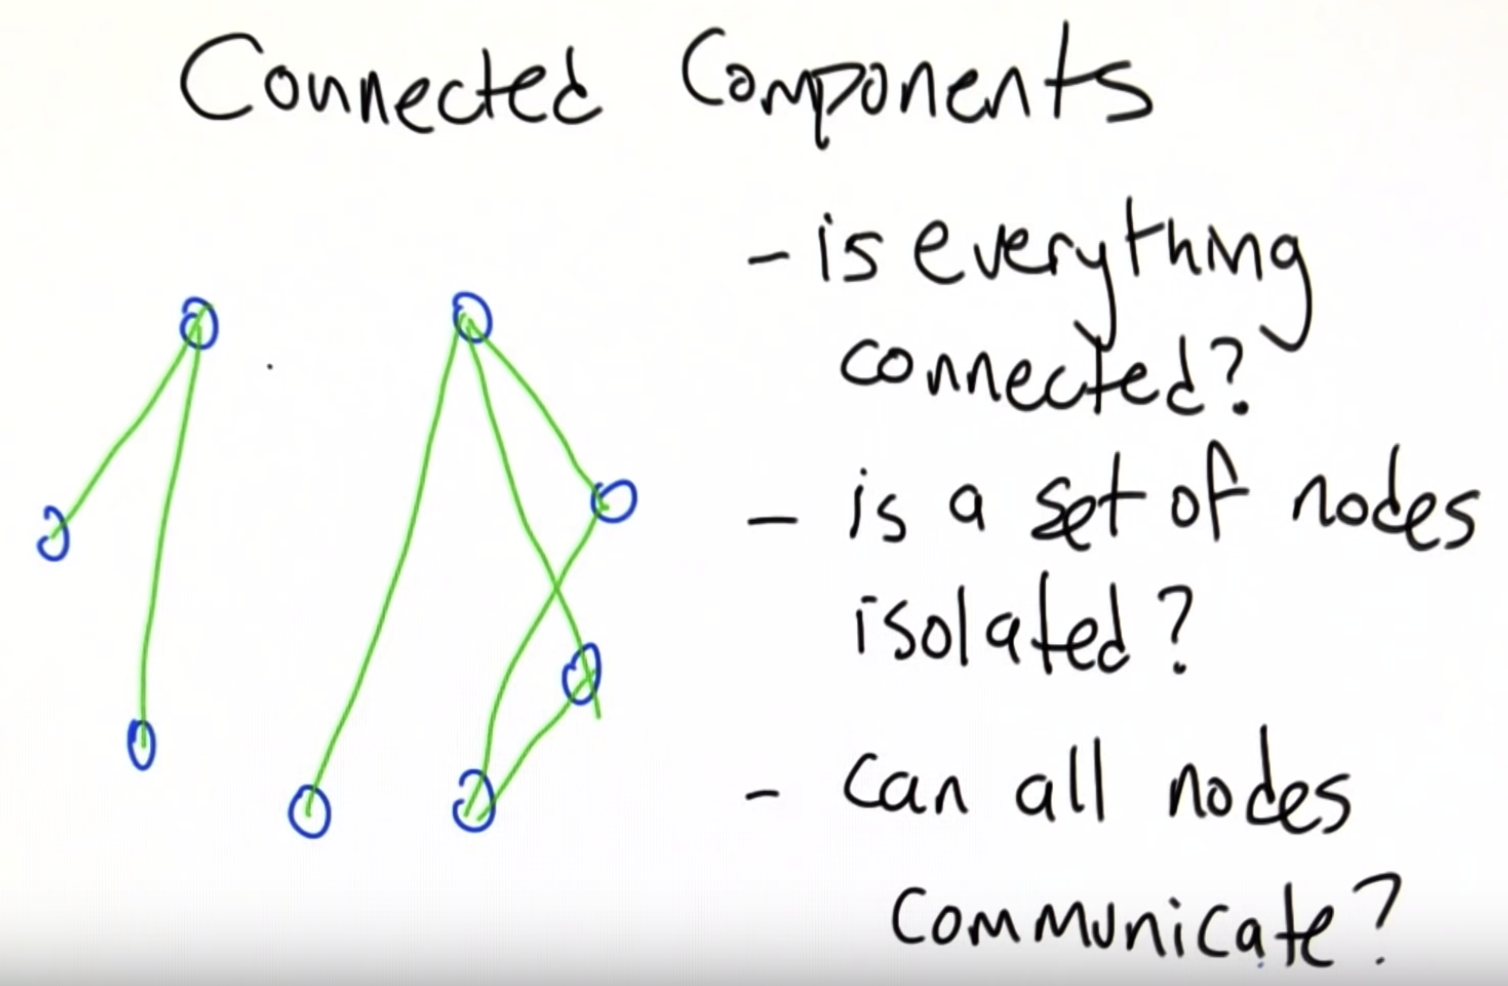 Connected Components
- is everything
connected?
- is a set of nodes
isolated?
- can all nodes
communicate?